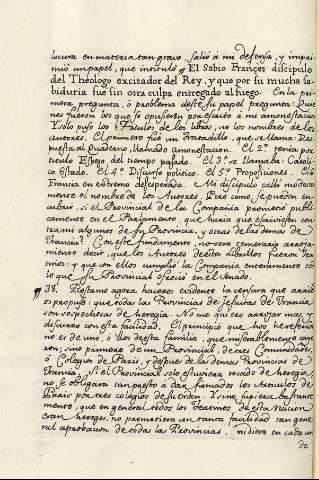 locura en materia tan grave, salió á mi defensa, y impri-
mió un papel, que intituló El Sabio Françes discipulo
del Theólogo excitador del Rey, y que por su mucha sa-
biduria fue sin otra culpa entregado al fuego. En la pri-
mera pregunta, ó problema deste su papel pregunta: Quie-
nes fueron los que se opusieron por escrito a mi amonestacion
Y solo puso los titulos de los libros, no los nombres de los
autores. El primero fue un tratadillo, que se llama: Res-
puesta al Quaderno, llamado amonestacion. El 2.º tenia por
titulo Espejo del tiempo pasado. El 3.º se llamaba: Catoli-
co Estado. El 4.º Discurso politico. El 5.º Proposiciones. El 6.º
Francia en extremo desesperada. Mi discipulo calló modesta-
mente el nombre de los Autores. Pero como se pueden en-
cubrir, si el Provincial de la Compañia prometió publi-
camente en el Parlamento, que haria que escriviesen con-
tra mi algunos de su Provincia, y otras de las demas de
Francia? Con este fundamento, no será temerario arroja-
menos decir, que los Autores destos libritos fueron Jesu-
itas: y que en ellos cumplió la Compañia enteramente to-
do lo que su Provincial ofreció en el Senado.
38. Restame agora haceros evidente la censura que arriba
os propuse: que todas las Provincias de Jesuitas de Francia
son sospechosas de heregia. No me quiero arrojar mas, y
discurro con esta facilidad. El principio que hos heretico
no es de uno, ó dos desta familia, que miserablemente caye-
ron; sino primero de un Provincial, de tres Comunidades,
ó Colegios de Paris, y despues de las demas Provincias de
Francia. Si el Provincial solo estuviera tocado de heregia
no se obligara tan presto á dar firmados los Articulos de
Paris por tres colegios de su Orden. Y si no supiera bastante-
mente, que en general todos los Teatinos de esta Nacion
eran hereges, no prometiera con tanta facilidad tan gene-
ral aprobacion de todas las Provincias, ni diera en cada un
de